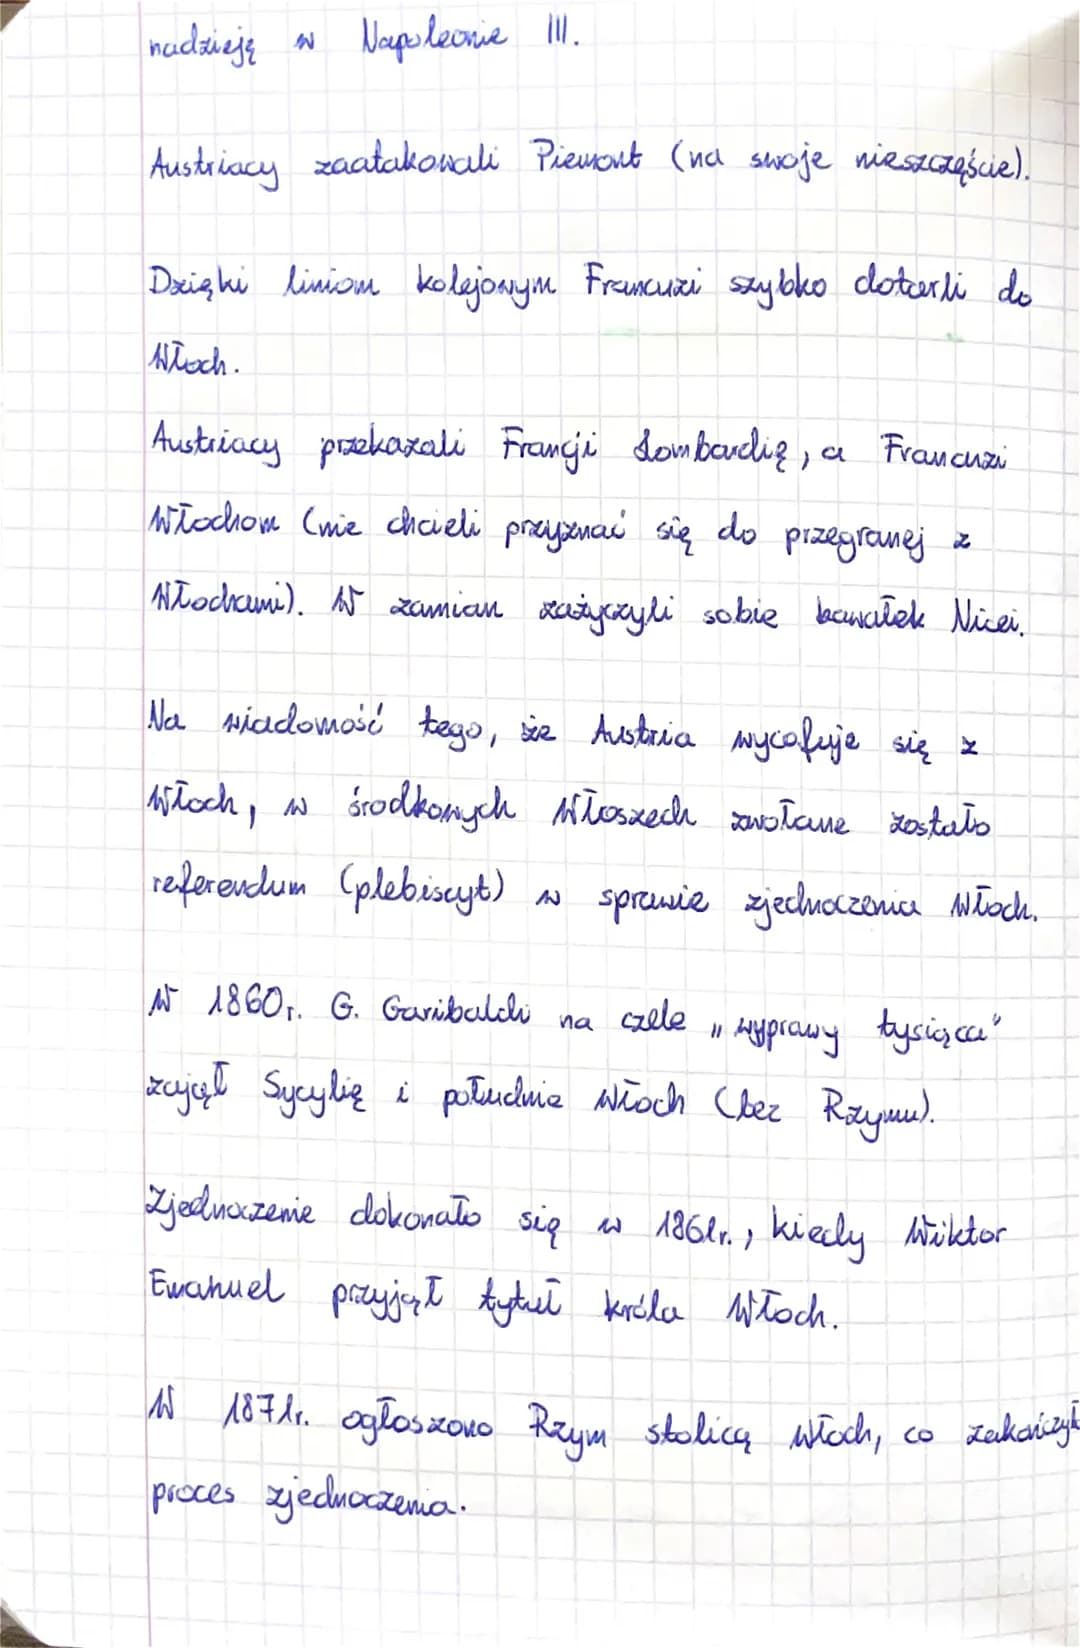 nadzieję w Napoleonie III.
Austriacy zaatakowali Piemont (na swoje nieszczęście).
Dzięki liniom kolejowym Francuzi szybko dotarli do
Włoch.
Austriacy przekazali Francji Lombardię, a Francuzi
Włochom (nie chcieli przyznać się do przegranej z
Włochami). W zamian zażyczyli sobie kawałek Nicei.
Na wiadomość tego, że Austria wycofuje się z
Włoch, w środkowych Włoszech zwołane zostało
referendum (plebiscyt) w sprawie zjednoczenia Włoch.
W 1860r. G. Garibaldi na czele „wyprawy tysiąca"
zajął Sycylię i południe Włoch (bez Rzymu).
Zjednoczenie dokonało się w 1861r., kiedy Wiktor
Emanuel przyjął tytuł króla Włoch.
W 1871r. ogłoszono Rzym stolicą Włoch, co zakończyło
proces zjednoczenia.